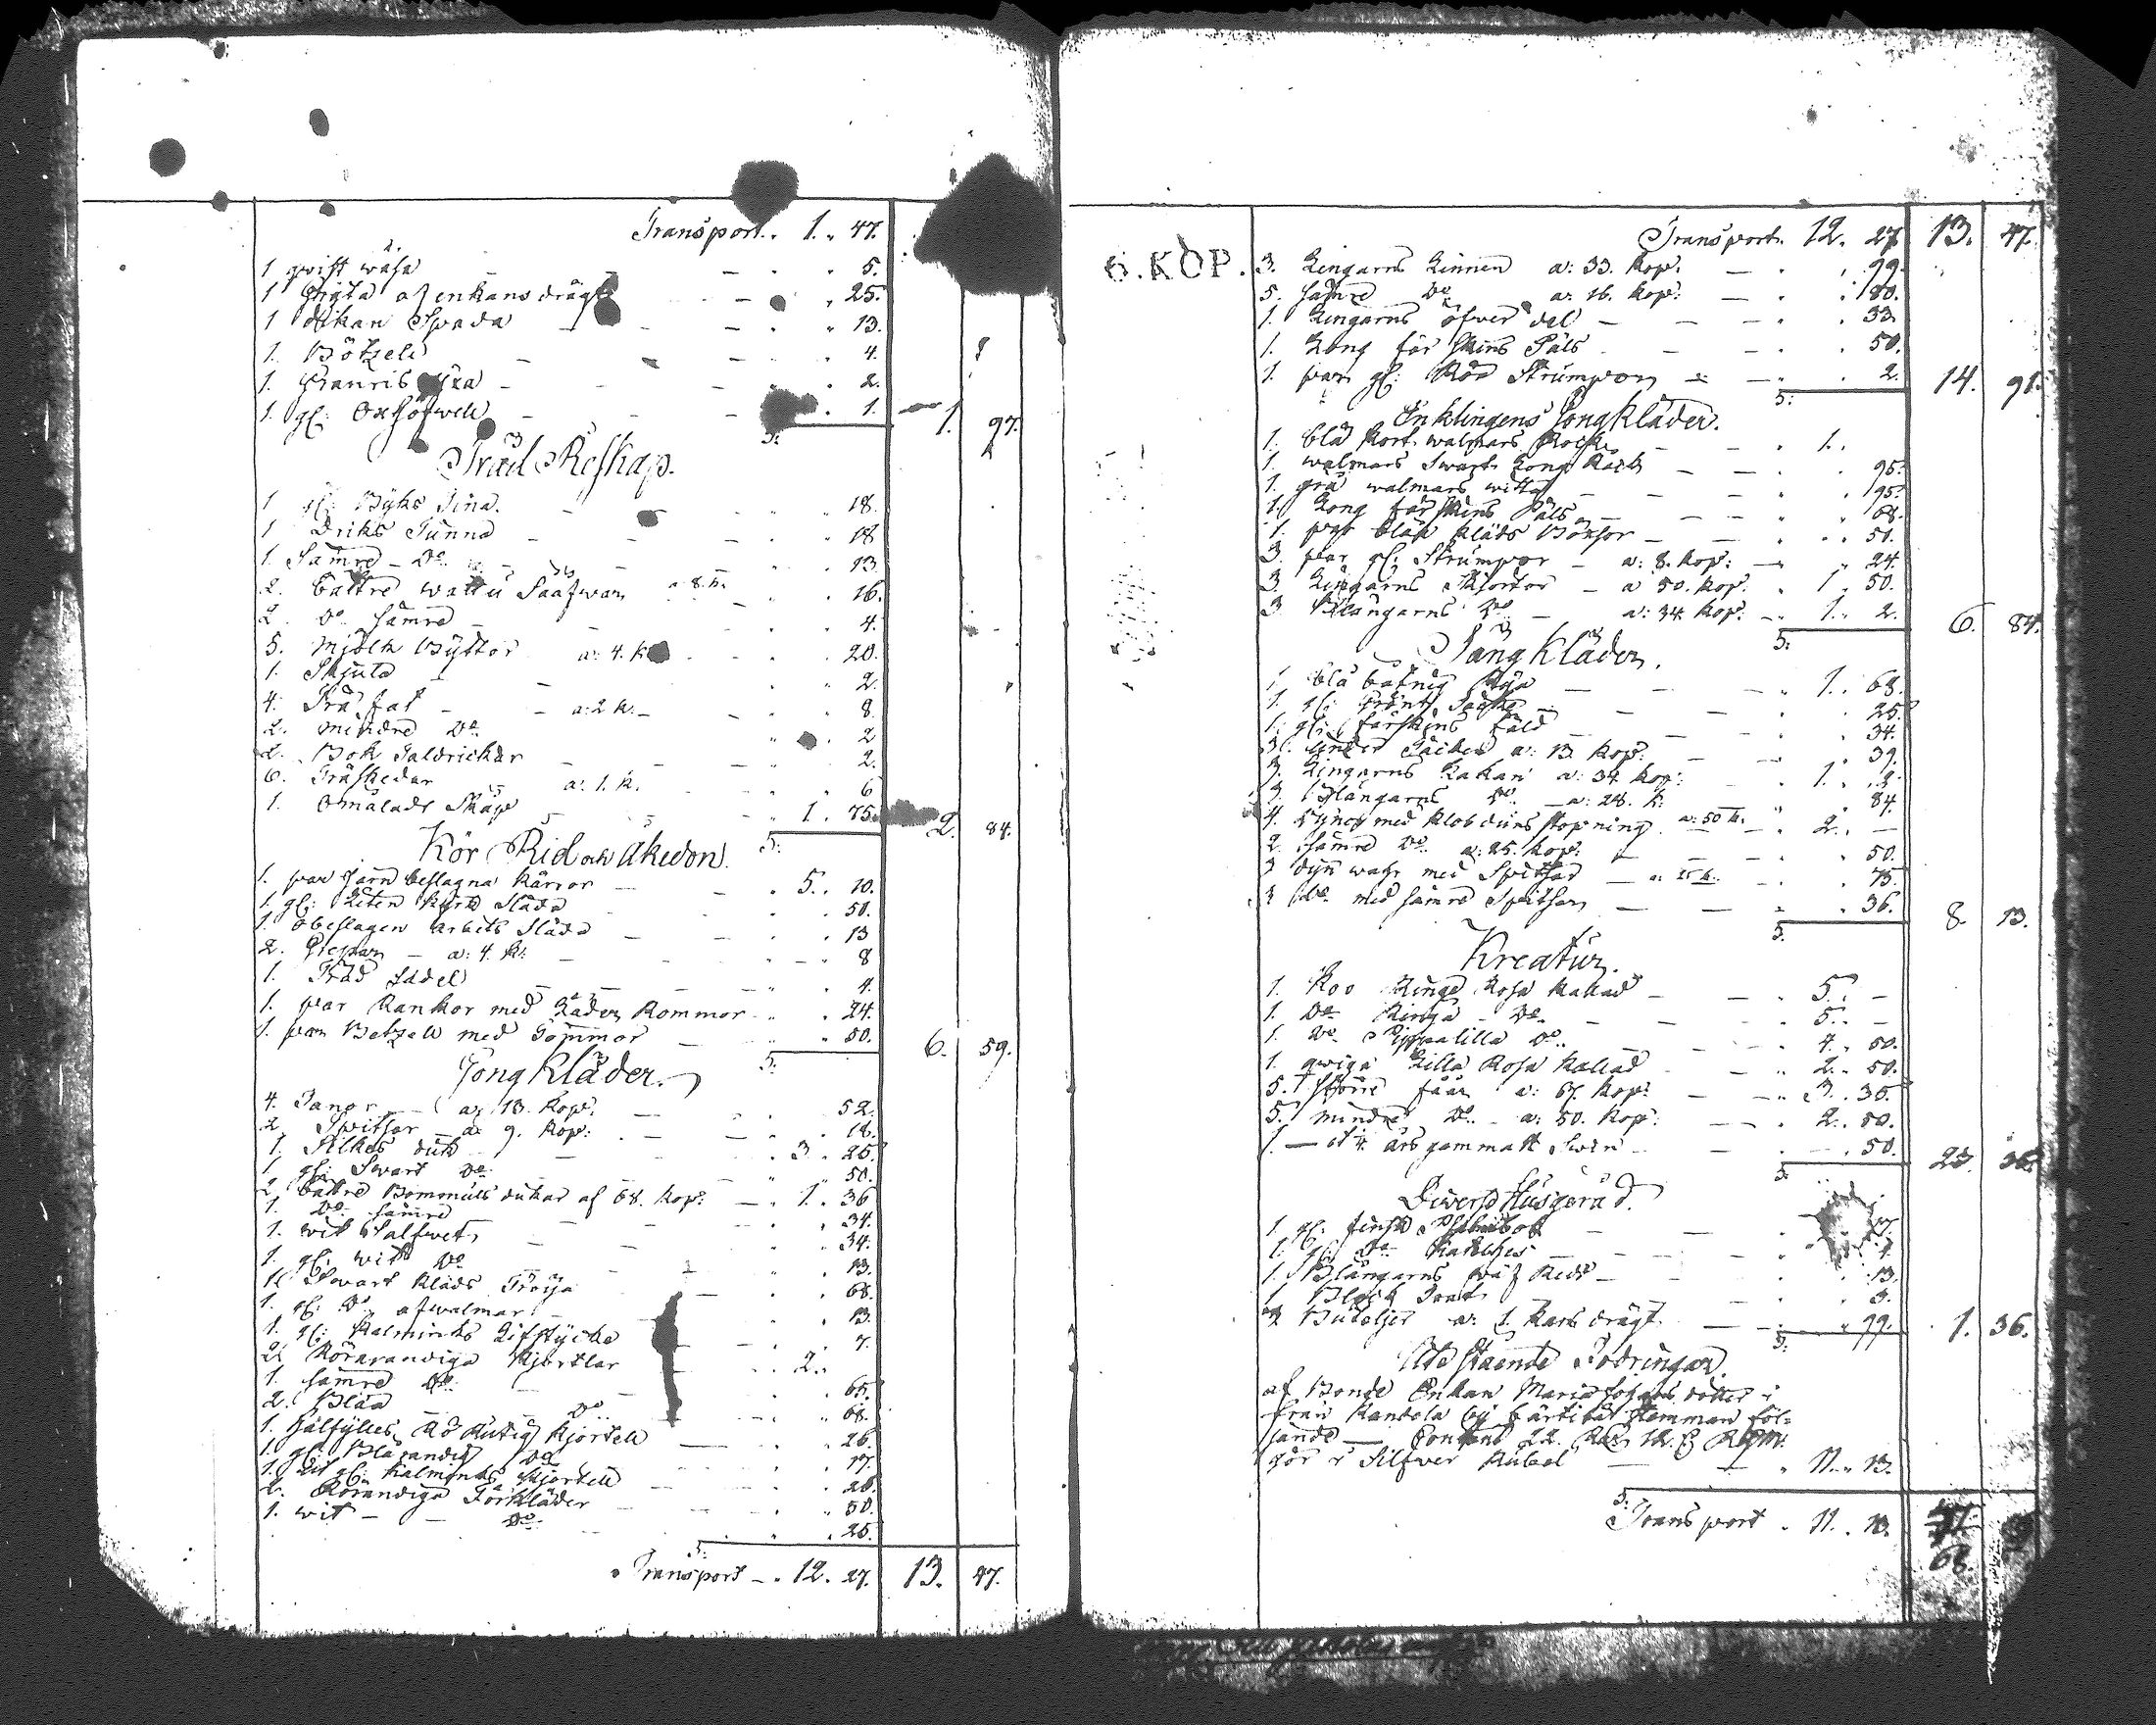 Transport. 1. 47.
1 qwist wåsa 5.
1 af enkans drägt 25.
1 Spada 13.
1. Bötzel 4.
1. 2.
1 gl: 1. 1. 97.
Träd Reskap.
1 gl: Byks Tina. 18.
1 Driks Tunna 18
1 Sämre D:o 13
2. battre wattu Sååfwar a 8. k. 16.
2 D:o Sämre 4.
5. Mjölk Byttor a: 4. k 20.
1. Skjula 2.
4. Trä fat a: 2 k. 8.
2. mindre D:o 2
2. Bok Taldrickar 2.
6. Träskedar a: 1. k. 6
1. Omåladt Skåp 1. 75. 2. 84.
S:
Kör Rid och åkedon.
1. par Järn beslagna kärror 5. 10.
1 gl: Liten kyrk Släda 50.
1. Obeslagen arbets Släda 13
2. a: 4. k: 8
1. Träd Sadel 4.
1. par Rankor med Läder Rommor 24.
1. par Betzell med Tömmor 50. 6. 59.
S:
Gong Kläder.
4. Tanor a: 13. kop: 52.
2. Spitsor a: 9. kop: 18.
1. Silkes duk 3. 25.
1 gl: Swart D:o 50.
2 battre Bommuls dukar af 68. kop: 1. 36
1. D:o Sämre 34.
1. wit Salfwet 34.
1. gl: wit D:o 13.
1 Swart kläds Tröija 68.
1. gl: D:o af walmar 13.
1. gl: Kalminks Lifstycke 7.
2 Rörarandiga Kjortlar 2.
1. Sämre D:o 65.
2. Blåa D:o 68.
1. halfylles Rö Rutig Kjortell 26.
1 gl: Blårandig D:o 17.
1. gl: Kalminks Kjortell 26.
2. Rörandiga Förkläder 50.
1. wit D:o 25.
S:
Transport 12. 27. 13. 47.
6. KOP.
Transport. 12. 27 13. 47.
3. Lingarns Linnen a: 33. kop: 99.
5. Sämre D:o a: 16. kop: 80.
1. Lingarns öfver del 33
1. Long fårskins Päls 50.
1. par gl: Röd Strumpor 2. 14. 91.
S:
Enklingens Gongkläder.
1. blå kort walmars Rock 1.
1. walmars Swart Long Rock 95.
1. grå walmars 95.
1. Long fårskins Päls 68
1. par kläds Böxsor 50.
3. par gl: Strumpor a: 8. kop: 24.
3. Lingarns Skjortor a 50. kop. 1 50.
3 Blångarns D:o a: 34 kop: 1. 2. 6. 84.
S:
Säng Kläder.
1. blå 1. 68.
1. gl: 25.
1. gl: fårskins fäld 34.
3. under Täcken a: 13 kop: 39.
3. Lingarns Lakan a: 34 kop: 1. 2.
3. Blångarns D:o a: 28. k: 84.
4. Dynor med Klob duns stopning a: 50 k. 2. —
2. Sämre D:o a: 25. kop: 50.
3 dyn war med Spitsar a: 25 k. 75.
3 D:o med Sämre Spitsar 36. 8. 13.
S.
Kreatur.
1. Koo Ringe Rosa Kallad 5. —
1 D:o Ringa D:o 5. —
1. D:o Pippalilla D:o 4. 50.
1. qwiga Lilla Rosa Kallad 2. 50.
5. större får a: 67. kop: 3. 35.
5. mindre D:o a: 50. kop: 2. 50.
1. — års gammalt Swin 50. 23. 35.
S.
Diverse Husgeråd.
1 gl: finsk Psalmbok 17.
1. gl: D:o Katekes 4.
1. Blångarns wäf Redt 13.
1 Bleck Tratt 3.
3 Buteljer a: 1. kans drägt 99. 1. 36.
S:
Utestående Fodringar.
af Bonde Enkan Maria Johans dotter i
från Kandola by
22. 12.
gör i Silfwer Rubel 11. 13.
S:
Transport 11. 13.
68.